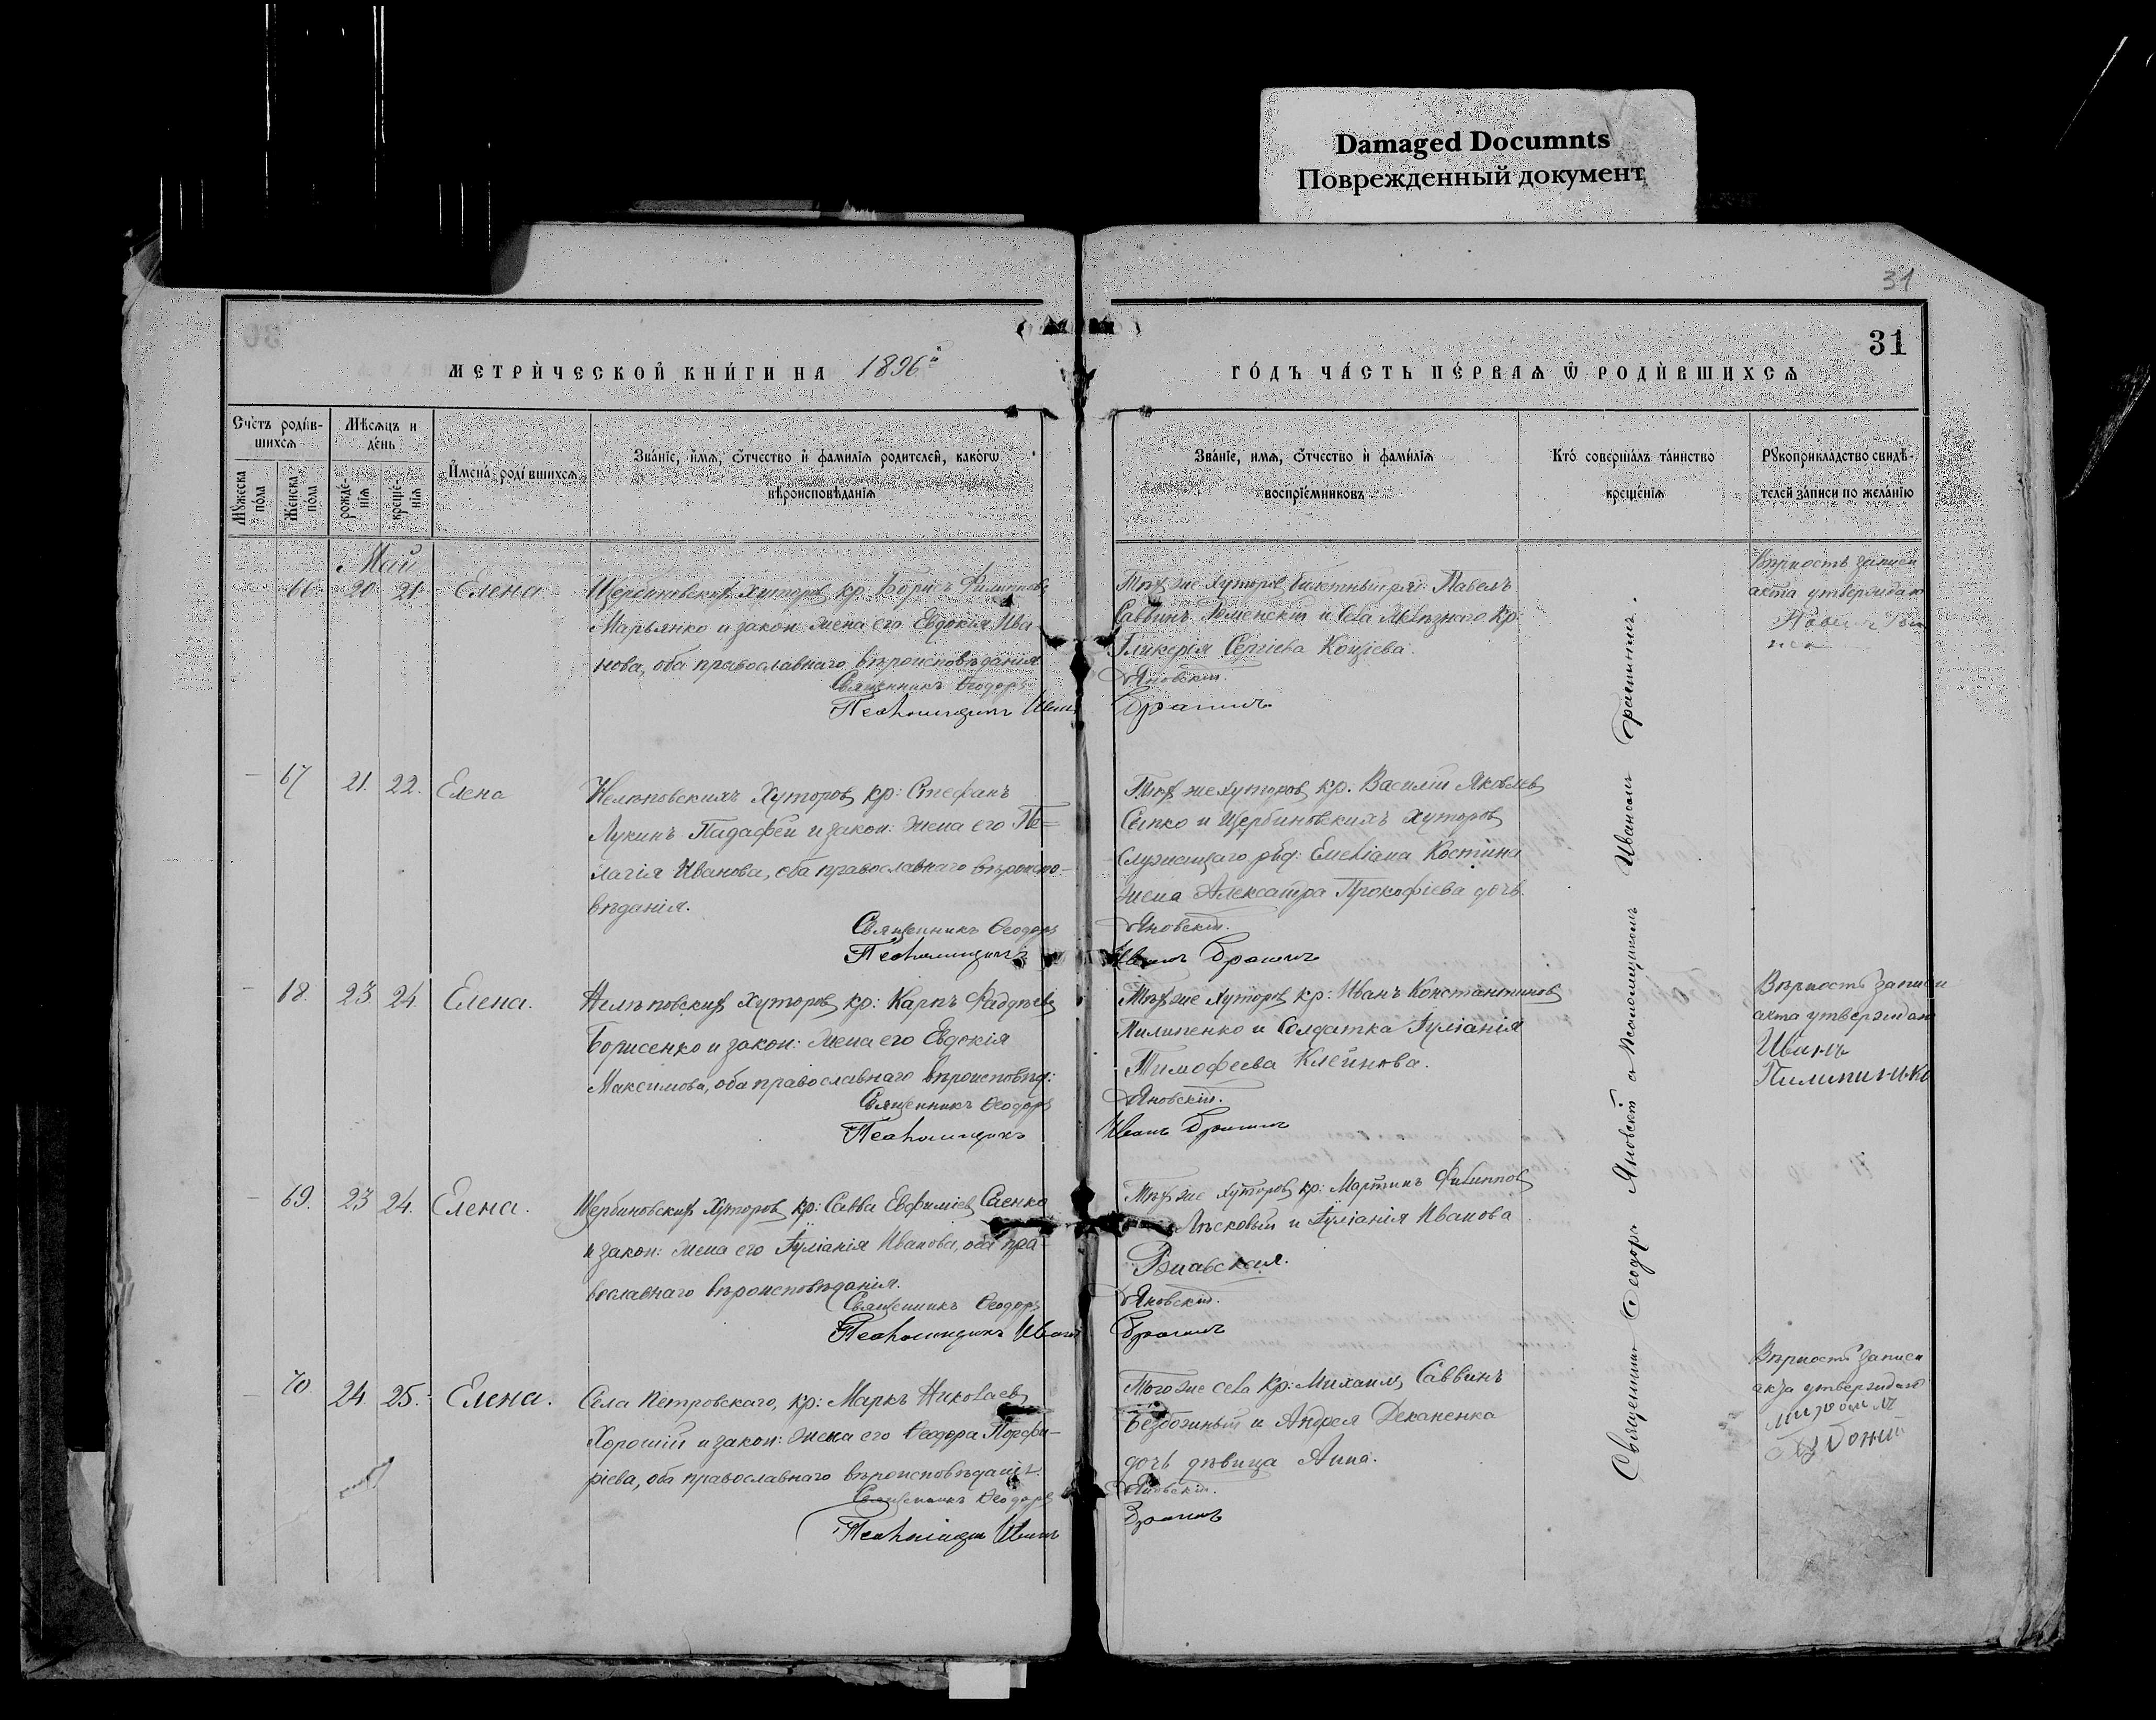 Damaged Documnts
Поврежденный документ
31
31
МЕТРИ́ЧЕСКОЙ КНИ́ГИ НА 1896й
ГО́ДЪ ЧА́СТЬ ПЕ́РВАѦ Ѿ РОДИ́ВШИХСѦ
Сче́тъ роди́в-
шихсѧ
Мꙋ́жеска
по́ла
Же́нска
по́ла
Мѣ́сѧцъ и
де́нь
рожде́-
нїѧ
креще́-
нїѧ
И҆мена̀ роди́вшихсѧ
Зва́нїе, и҆́мѧ, ѻ҆́тчество и҆ фами́лїѧ роди́телей, како́гѡ
вѣроисповѣ́данїѧ
Зва́нїе, и҆́мѧ, ѻ҆́тчество и҆ фами́лїѧ
воспрїе́мниковъ
Кто̀ соверша́лъ та́инство
креще́нїѧ
Рꙋкоприкла́дство свидѣ́-
телей за́писи по жела́нїю
Май
66. 20. 21. Елена
Щербиновскихъ Хуторовъ кр. Борисъ Филимоновъ
Марьянко и закон: жена его Евдокія Ива-
нова, оба православнаго вѣроисповѣданія.
Священникъ Ѳеодоръ
Псаломщикъ Иванъ
Тѣхъ же хуторовъ Павелъ
Саввинъ и села кр:
Гликерія Сергіева
Яновскій.
Верность записи
акта утверждаю
— 67 21. 22. Елена
Хуторовъ кр: Стефанъ
Лукинъ и закон: жена его Пе=
лагія Иванова, оба православнаго вѣроиспо-
вѣданія.
Священникъ Ѳеодоръ
Псаломщикъ
Тѣхъ же хуторовъ кр. Василій Яковлевъ
Сыпко и Щербиновскихъ Хуторовъ
Служащаго Емеліана Костина
жена Александра Прокофіева дочь.
Яновскій.
Иванъ
— 68. 23. 24. Елена.
Хуторовъ кр: Карпъ Фадѣевъ
Борисенко и закон: жена его Евдокія
Максимова, оба православнаго вѣроисповѣд:
Священникъ Ѳеодоръ
Псаломщикъ
Тѣхъ же Хуторовъ кр: Иванъ Константиновъ
Пилипенко и Солдатка Іуліанія
Тимофеева Клейнова.
Яновскій.
Иванъ
Вѣрность записи
акта утверждаю
Иванъ
Пилипинко
— 69. 23 24. Елена.
Щербиновскихъ Хуторовъ кр: Савва Евфиміевъ Саенко
и закон: жена его Іуліанія Иванова, оба пра-
вославнаго вѣроисповѣданія.
Священникъ Ѳеодоръ
Псаломщикъ Иванъ
Тѣхъ же Хуторовъ кр: Мартинъ Филиповъ
Лѣсковый и Іуліанія Иванова
Яновскій.
— 70. 24. 25. Елена.
Села Петровскаго, кр: Маркъ Николаевъ
Хорошій и закон: жена его Ѳеодора Порфи-
ріева, оба православнаго вѣроисповѣданія.
Священникъ Ѳеодоръ
Псаломщикъ Иванъ
Того же села кр: Михаилъ Саввинъ
Безбожный и Андрея Деканенка
дочь дѣвица Анна.
Яновскій.
Вѣрность записи
акта утверждаю
Священникъ Ѳеодоръ Яновскій с Псаломщикомъ Иваномъ